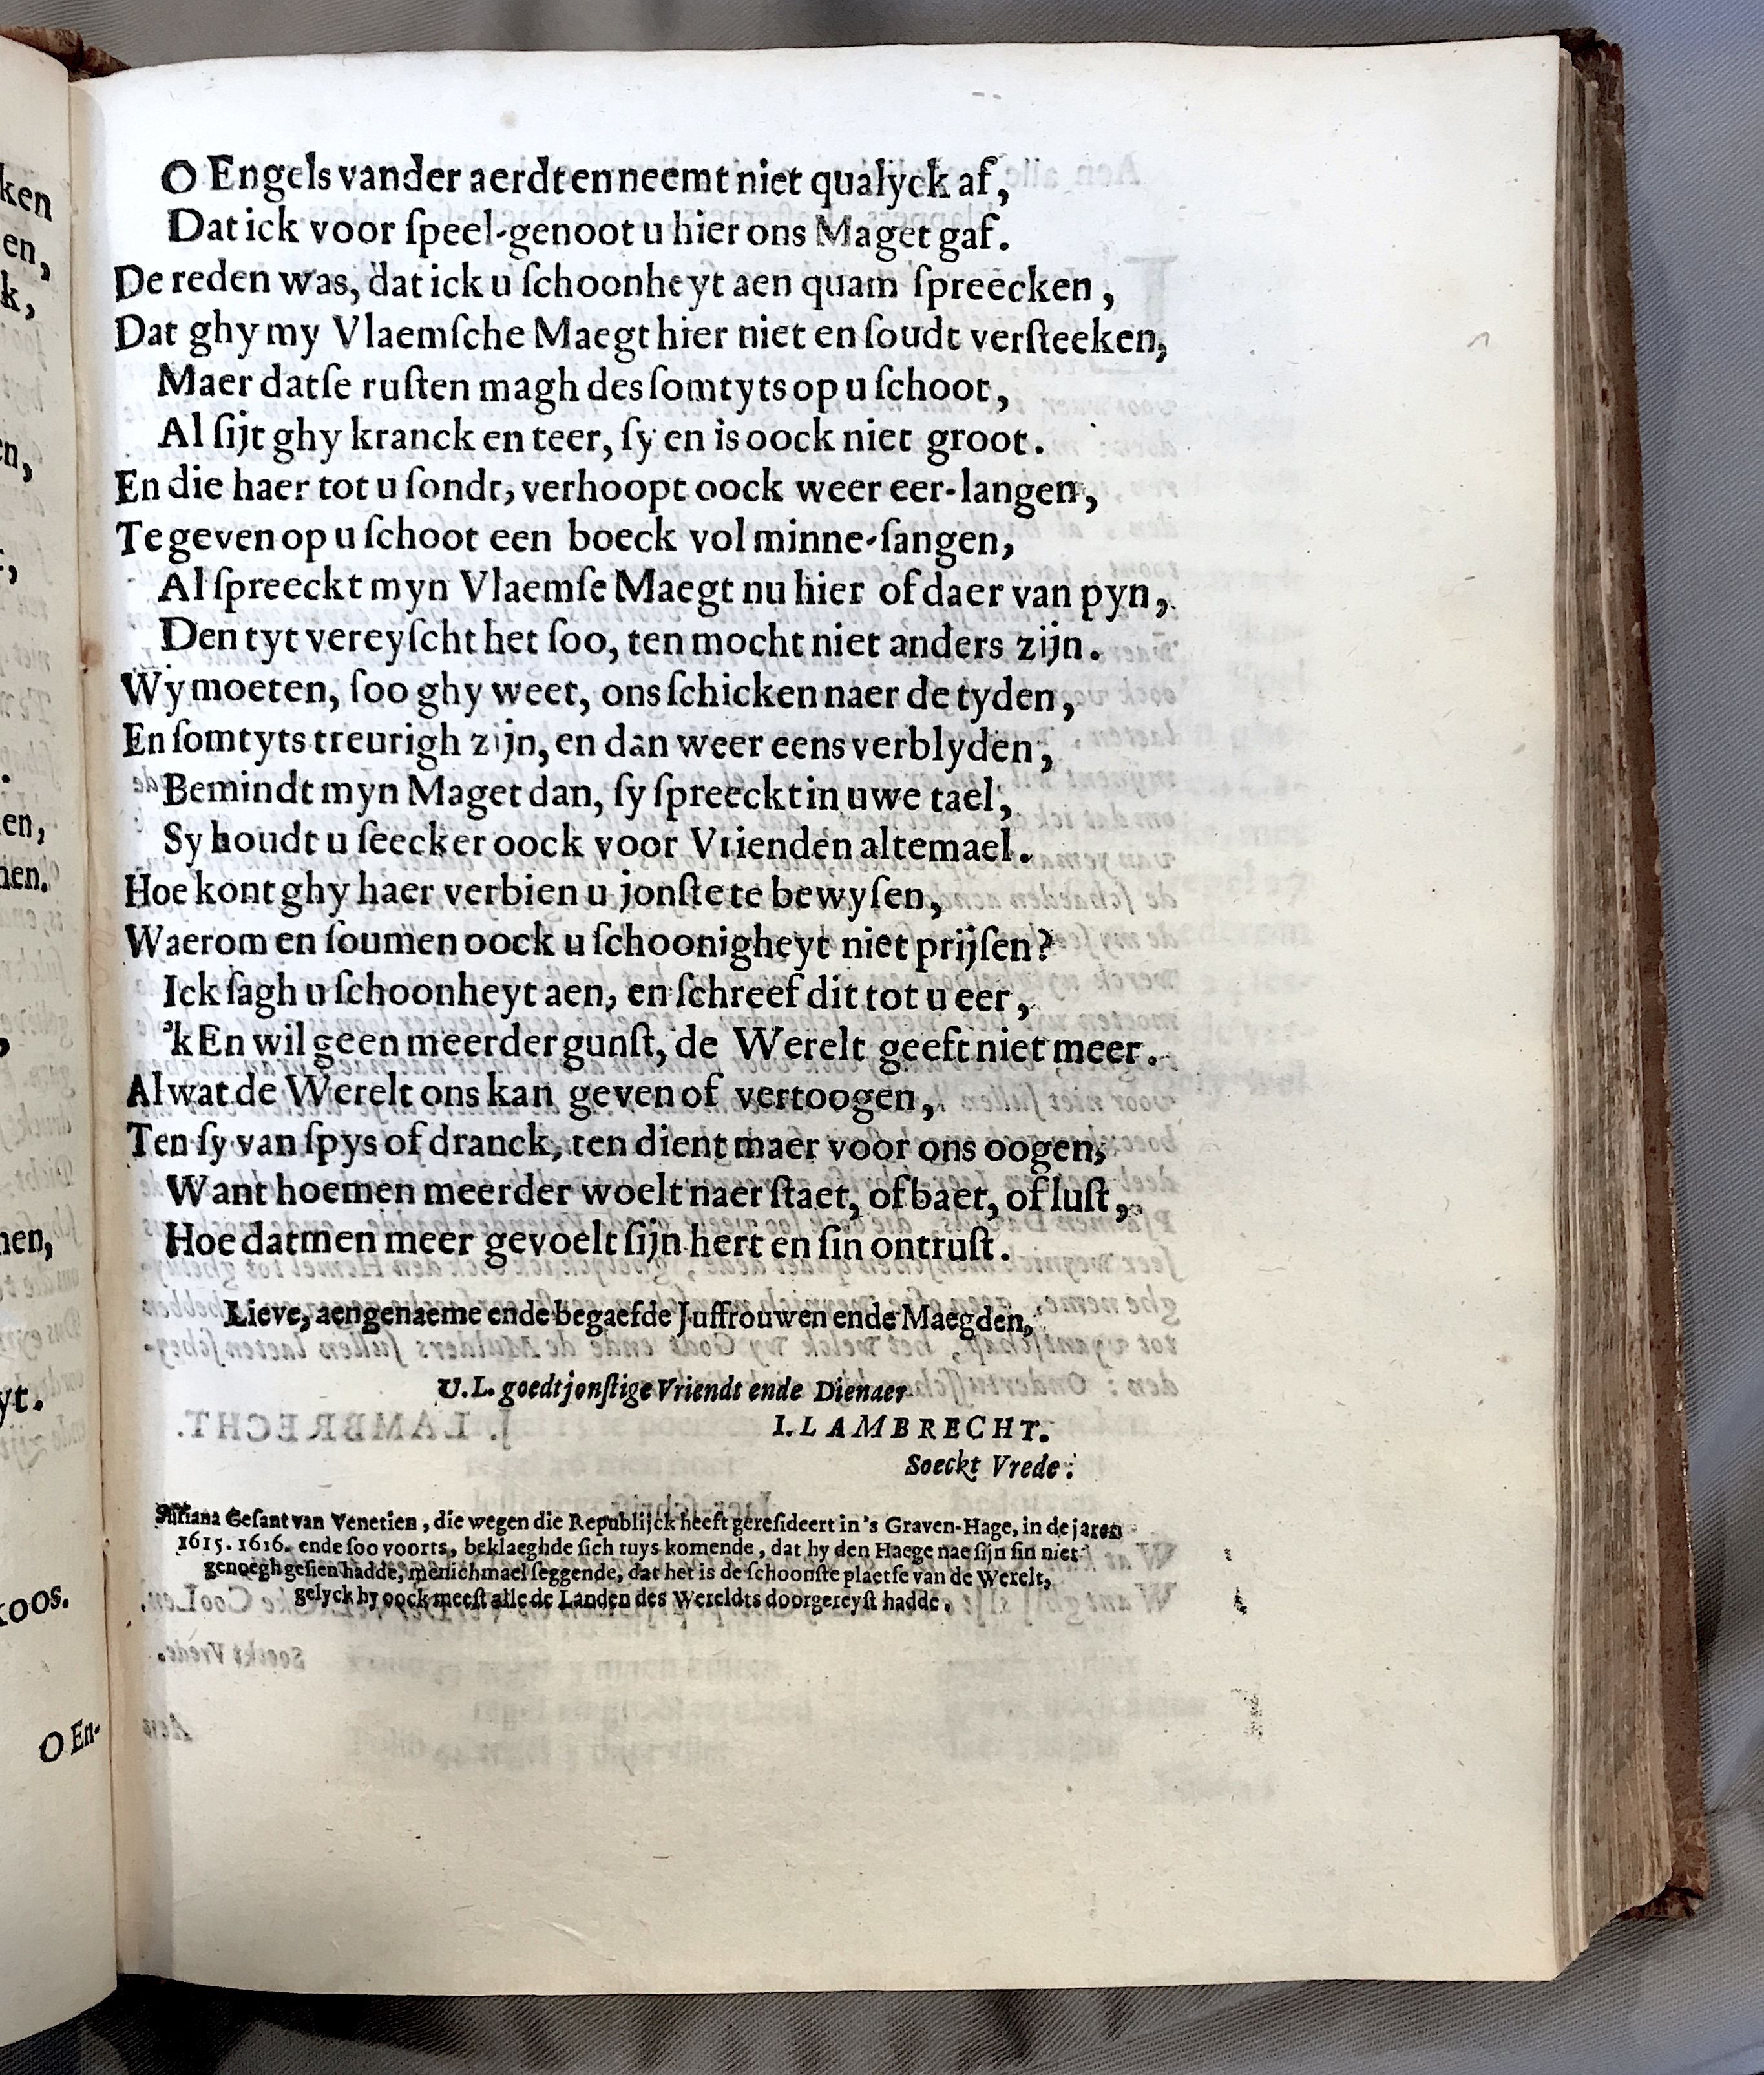 O Engels vander aerdt en neemt niet qualyck af,
Dat ick voor ſpeel-genoot u hier ons Maget gaf.
De reden was, dat ick u ſchoonheyt aen quam ſpreecken,
Dat ghy my Vlaemſche Maegt hier niet en ſoudt verſteeken,
Maer datſe ruſten magh des ſomtyts op u ſchoot,
Al ſijt ghy kranck en teer, ſy en is oock niet groot.
En die haer tot u ſondt, verhoopt oock weer eer-langen,
Te geven op u ſchoot een boeck vol minne-ſangen,
Al ſpreeckt myn Vlaemſe Maegt nu hier of daer van pyn,
Den tyt vereyſcht het ſoo, ten mocht niet anders zijn.
Wy moeten, ſoo ghy weet, ons ſchicken naer de tyden,
En ſomtyts treurigh zijn, en dan weer eens verblyden,
Bemindt myn Maget dan, ſy ſpreeckt in uwe tael,
Sy houdt u ſeecker oock voor Vrienden altemael.
Hoe kont ghy haer verbien u jonſte te bewyſen,
Waerom en ſoumen oock u ſchoonigheyt niet prijſen?
Ick ſagh u ſchoonheyt aen, en ſchreef dit tot u eer,
'k En wil geen meerder gunſt, de Werelt geeft niet meer.
Al wat de Werelt ons kan geven of vertoogen,
Ten ſy van ſpys of dranck, ten dient maer voor ons oogen,
Want hoemen meerder woelt naer ſtaet, of baet, of luſt,
Hoe datmen meer gevoelt ſijn hert en ſin ontruſt.
Lieve, aengenaeme ende begaefde Juffrouwen ende Maegden,
U.L. goedtjonſtige Vriendt ende Dienaer
I. LAMBRECHT.
Soeckt Vrede.
Geſant van Venetien, die wegen die Republijck heeft gereſideert in 's Graven-Hage, in de jaren
1615. 1616. ende ſoo voorts, beklaeghde ſich tuys komende, dat hy den Haege nae ſijn ſin niet
genoegh geſien hadde, menichmael ſeggende, dat het is de ſchoonſte plaetſe van de Werelt,
gelyck hy oock meeſt alle de Landen des Wereldts doorgereyſt hadde.
ken
en,
k,
en,
men,
yt.
koos.
O En-